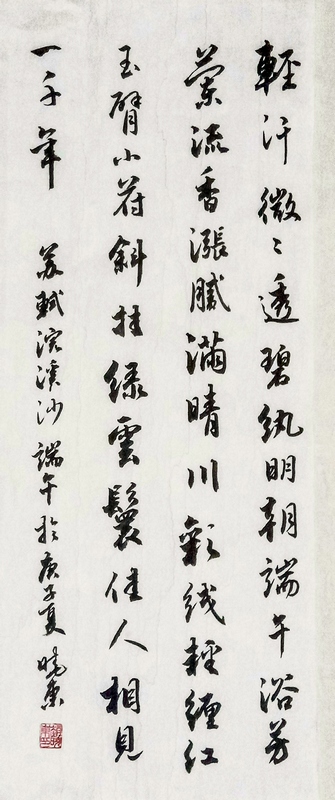 輕汗微々透碧紈明朝端午浴芳
蘭流香漲膩滿晴川彩线輕纏红
玉臂小符斜挂绿雲鬟佳人相見
一千年 苏軾浣溪沙端午於庚子夏